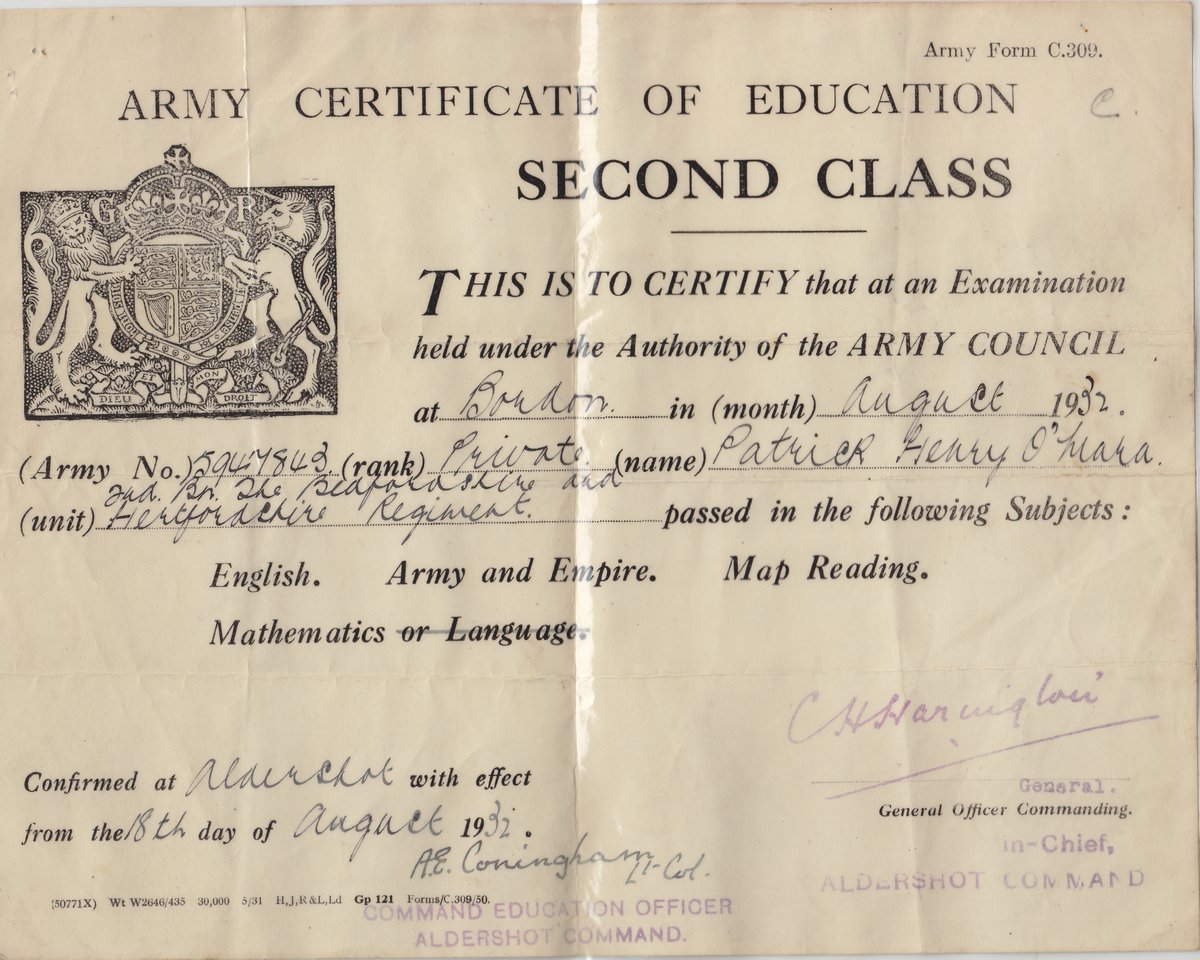 Army Form C.309.
ARMY CERTIFICATE OF EDUCATION C.
SECOND CLASS
G R
DIEU ET MON DROIT
THIS IS TO CERTIFY that at an Examination
held under the Authority of the ARMY COUNCIL
at Bordon. in (month) August 1932.
(Army No.) 5947843. (rank) Private. (name) Patrick Henry O'Mara.
2nd. Bn. The Bedfordshire and
(unit) Hertfordshire Regiment. passed in the following Subjects :
English. Army and Empire. Map Reading.
Mathematics or Language.
C H Harington
Confirmed at Aldershot with effect
General.
General Officer Commanding.
from the 18th day of August 1932.
in-Chief,
A.E. Coningham Lt-Col.
ALDERSHOT COMMAND
(50771X) Wt W2646/435 30,000 5/31 H,J,R&L,Ld Gp 121 Forms/C.309/50.
COMMAND EDUCATION OFFICER
ALDERSHOT COMMAND.